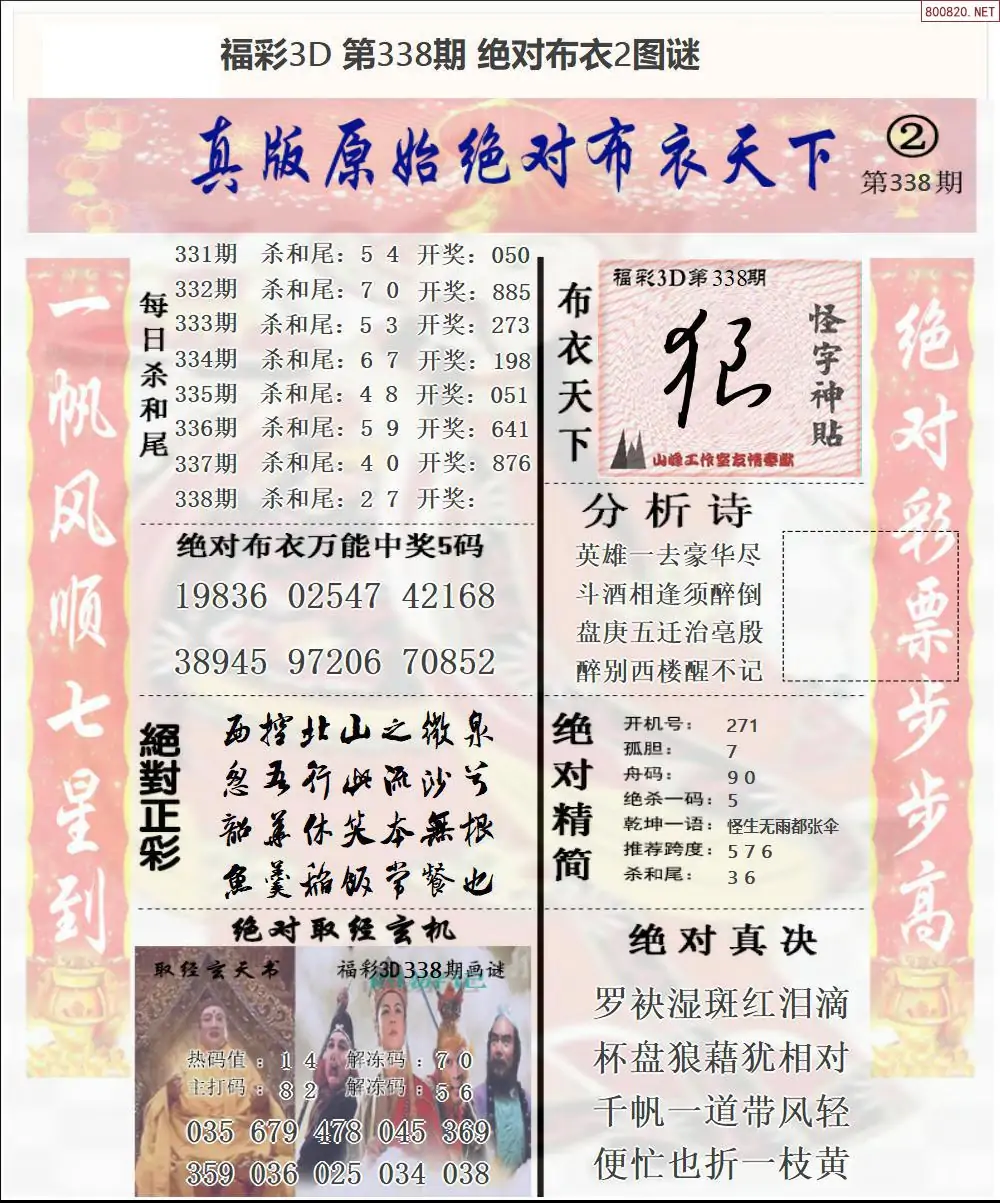 800820.NET
福彩3D 第338期 绝对布衣2图谜
真版原始绝对布衣天下
②
第338期
一帆风顺七星到
每日杀和尾
331期 杀和尾: 5 4 开奖: 050
332期 杀和尾: 7 0 开奖: 885
333期 杀和尾: 5 3 开奖: 273
334期 杀和尾: 6 7 开奖: 198
335期 杀和尾: 4 8 开奖: 051
336期 杀和尾: 5 9 开奖: 641
337期 杀和尾: 4 0 开奖: 876
338期 杀和尾: 2 7 开奖:
绝对布衣万能中奖5码
19836 02547 42168
38945 97206 70852
絕對正彩
西控北山之微泉
忽吾行此流沙兮
韶華休笑本無根
魚羹稲飯常餐也
绝对取经玄机
取经玄天书
福彩3D338期画谜
热码值：1 4 解冻码：7 0
主打码：8 2 解冻码：5 6
035 679 478 045 369
359 036 025 034 038
布衣天下
福彩3D第338期
狠
怪字神貼
山峰工作室友情奉献
分析诗
英雄一去豪华尽
斗酒相逢须醉倒
盘庚五迁治亳殷
醉别西楼醒不记
绝对精简
开机号: 271
孤胆: 7
舟码: 9 0
绝杀一码: 5
乾坤一语: 怪生无雨都张伞
推荐跨度: 5 7 6
杀和尾: 3 6
绝对真决
罗袂湿斑红泪滴
杯盘狼藉犹相对
千帆一道带风轻
便忙也折一枝黄
绝对彩票步步高